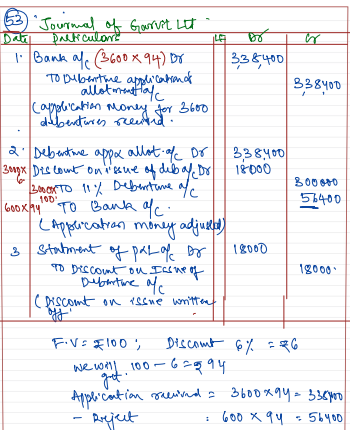 53 Journal of Garvit Ltd.
Date Particulars LF Dr Cr
1. Bank a/c (3600 x 94) Dr 3,38,400
To Debenture application & allotment a/c 3,38,400
(application money for 3600
debentures received.
2. Debenture appx allot. a/c Dr 3,38,400
3000x6 Discount on issue of deb a/c Dr 18000
3000x100 To 11% Debenture a/c 300000
600x94 To Bank a/c. 56400
(Application money adjusted)
3 Statment of P&L a/c Dr 18000
To Discount on Issue of
Debenture a/c 18000.
(Discount on issue written
off.
F.V = ₹100 ; Discount 6% = ₹6
we will get 100 - 6 = ₹94
Application received = 3600 x 94 = 338400
- Reject : 600 x 94 = 56400